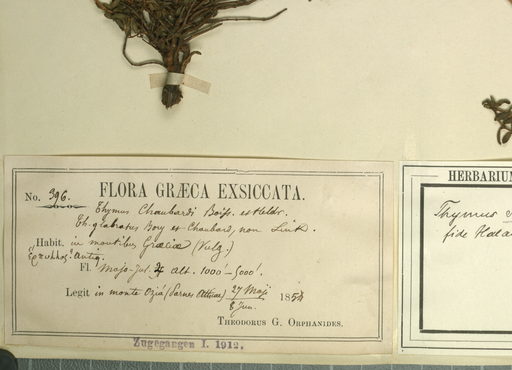 FLORA GRÆCA EXSICCATA.
No. 396.
Thymus Chaubardi Boiss. et Heldr.
Th. glabratus Bory et Chaubard, non Link.
Habit. in montibus Græciæ (Vulg.)
Antiq.
Fl. Majo-Jul. ♃ Alt. 1000'-5000'.
Legit in monte Ozia (Parnes Atticae) 27 Maji 1854
8 Jun.
THEODORUS G. ORPHANIDES.
Zugegangen I. 1912.
HERBARIUM
Thymus
fide